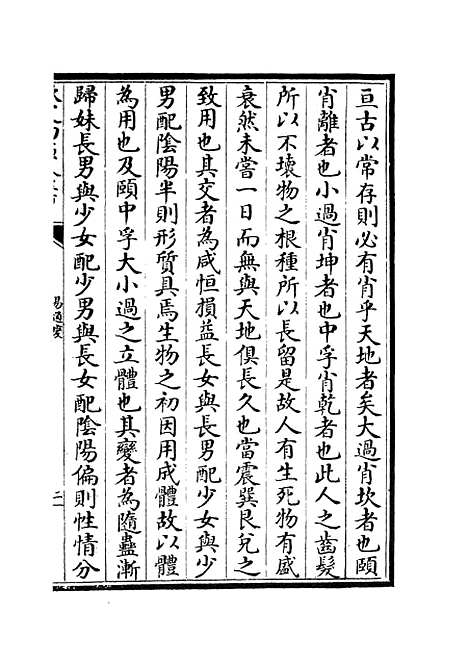 亘古以常存則必有肖乎天地者矣大過肖坎者也頤
肖離者也小過肖坤者也中孚肖乾者也此人之齒髮
所以不壞物之根種所以長留是故人有生死物有盛
衰然未嘗一日而無與天地俱長久也當震巽艮兌之
致用也其交者為咸恒損益長女與長男配少女與少
男配陰陽半則形質具焉生物之初因用成體故以體
為用也及頤中孚大小過之立體也其變者為隨蠱漸
歸妹長男與少女配少男與長女配陰陽偏則性情分
易通變